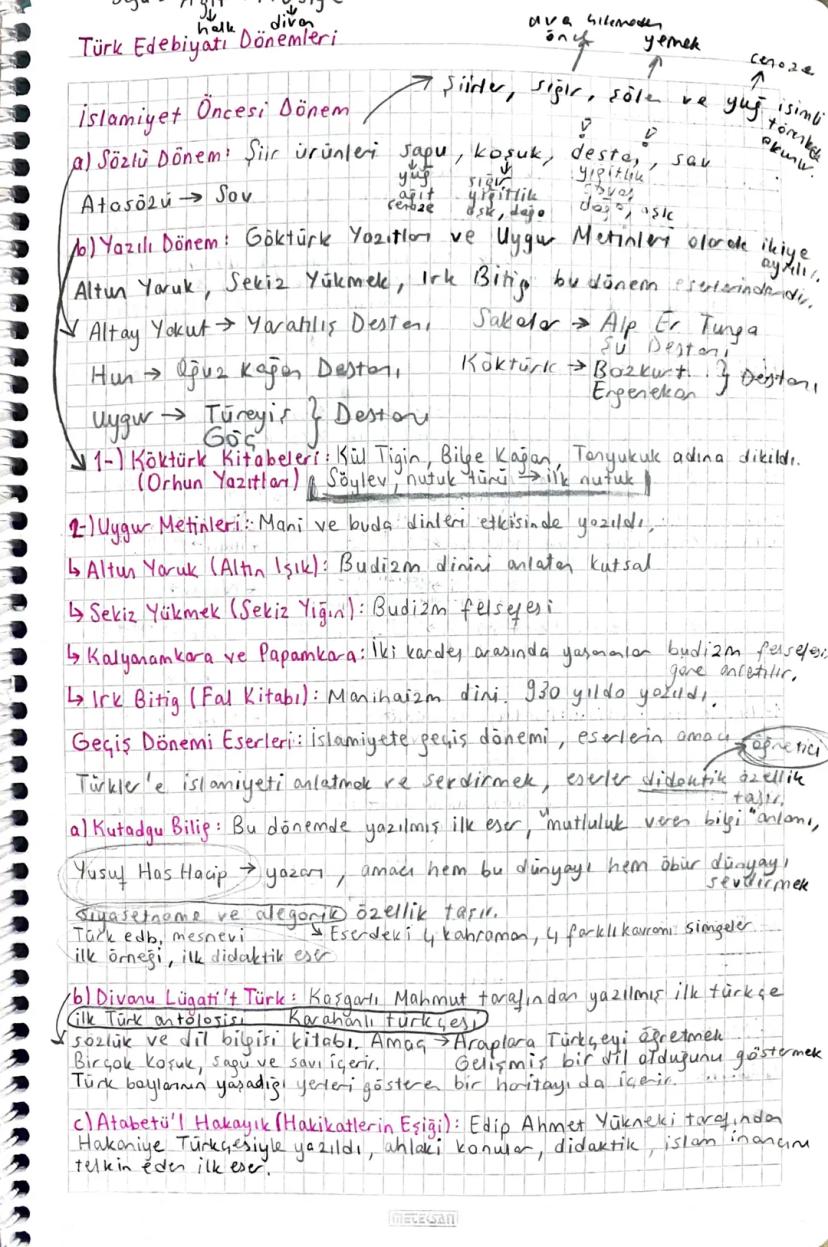 halk
divan
Türk Edebiyatı Dönemleri
ava gitmeden
önce
yemek
cenaze
İslamiyet Öncesi Dönem
Şiirler, sığır, şölen ve yuğ isimli
törenlerde
okunur.
a) Sözlü Dönem: Şiir ürünleri sagu, koşuk, destan, sav
yuğ
ağıt
cenaze
sığır
yiğitlik
aşk, doğa
yiğitlik
savaş
doğa, aşk
Atasözü → Sav
b) Yazılı Dönem: Göktürk Yazıtları ve Uygur Metinleri olarak ikiye
ayrılır.
Altun Yaruk, Sekiz Yükmek, Irk Bitig bu dönem eserlerindendir.
Altay Yakut → Yaratılış Destanı
Sakalar → Alp Er Tunga
Şu Destanı
Hun → Oğuz Kağan Destanı
Köktürk → Bozkurt
Ergenekon } Destanı
Uygur → Türeyiş
Göç } Destanı
1-) Köktürk Kitabeleri: Kül Tigin, Bilge Kağan, Tonyukuk adına dikildi.
(Orhun Yazıtları) Söylev, nutuk türü → ilk nutuk
2-) Uygur Metinleri: Mani ve buda dinleri etkisinde yazıldı.
↳ Altun Yaruk (Altın Işık): Budizm dinini anlatan kutsal
↳ Sekiz Yükmek (Sekiz Yığın): Budizm felsefesi
↳ Kalyanamkara ve Papamkara: İki kardeş arasında yaşananlar budizm felsefesi
göre anlatılır.
↳ Irk Bitig (Fal Kitabı): Manihaizm dini. 930 yılda yazıldı.
Geçiş Dönemi Eserleri: İslamiyete geçiş dönemi, eserlerin amacı öğretici
Türkler'e islamiyeti anlatmak ve sevdirmek, eserler didaktik özellik
taşır.
a) Kutadgu Bilig: Bu dönemde yazılmış ilk eser, "mutluluk veren bilgi" anlamı,
Yusuf Has Hacip → yazarı, amacı hem bu dünyayı hem öbür dünyayı
sevdirmek
siyasetname ve alegorik özellik taşır.
Türk edb. mesnevi
↳ Eserdeki 4 kahraman, 4 farklı kavramı simgeler
ilk örneği, ilk didaktik eser
b) Divanu Lügati't Türk: Kaşgarlı Mahmut tarafından yazılmış ilk türkçe
ilk Türk antolojisi Karahanlı türkçesi
sözlük ve dil bilgisi kitabı. Amaç → Araplara Türkçeyi öğretmek
Birçok koşuk, sagu ve savı içerir. Gelişmiş bir dil olduğunu göstermek
Türk boylarının yaşadığı yerleri gösteren bir haritayı da içerir.
c) Atabetü'l Hakayık (Hakikatlerin Eşiği): Edip Ahmet Yükneki tarafından
Hakaniye Türkçesiyle yazıldı, ahlaki konular, didaktik, islam inancını
telkin eden ilk eser.
METEKSAN